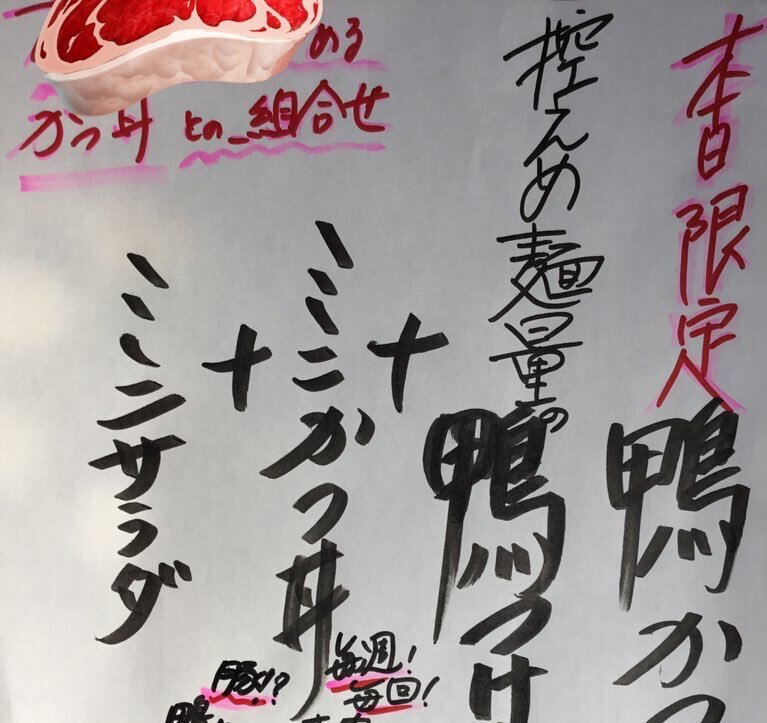 本日限定
鴨かつ
控えめ麺量の
鴨つけ
+
ミニかつ丼
+
ミニサラダ
める
かつ丼との組合せ
毎週!
毎回!
豚!?
鴨